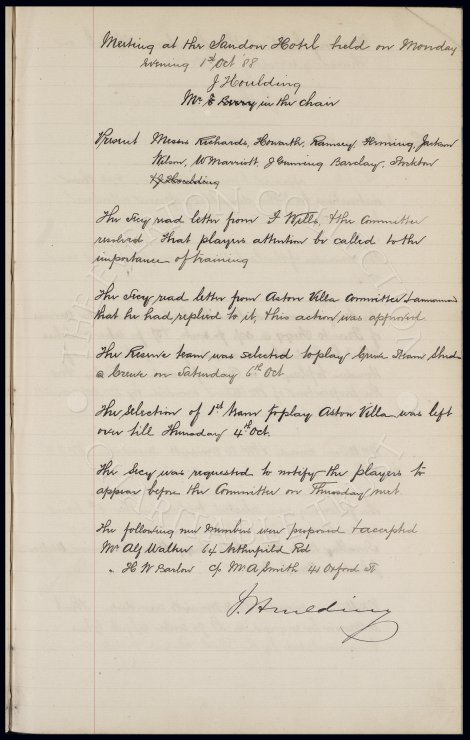 Meeting at the Sandon Hotel held on Monday
evening 1st Oct 88
J Houlding
Mr E Berry in the chair
Present Messrs Richards, Howarth, Ramsay, Fleming, Jackson
Wilson, W Marriott, J Gunning Barclay, Stockton
& J Houlding
The Secy read letter from F Wills, & the Committee
resolved that players attention be called to the
importance of training
The Secy read letter from Aston Villa Committee & announced
that he had replied to it, this action was approved
The Reserve team was selected to play Crewe Steam Sheds
@ Crewe on Saturday 6th Oct
The selection of 1st team to play Aston Villa was left
over till Thursday 4th Oct.
The Secy was requested to notify the players to
appear before the Committee on Thursday next
The following new members were proposed & accepted
Mr Alf Walker 64 Rd
" H W Barlow c/o Mr A Smith 41 Oxford St
J. Houlding
THE EVERTON COLLECTION